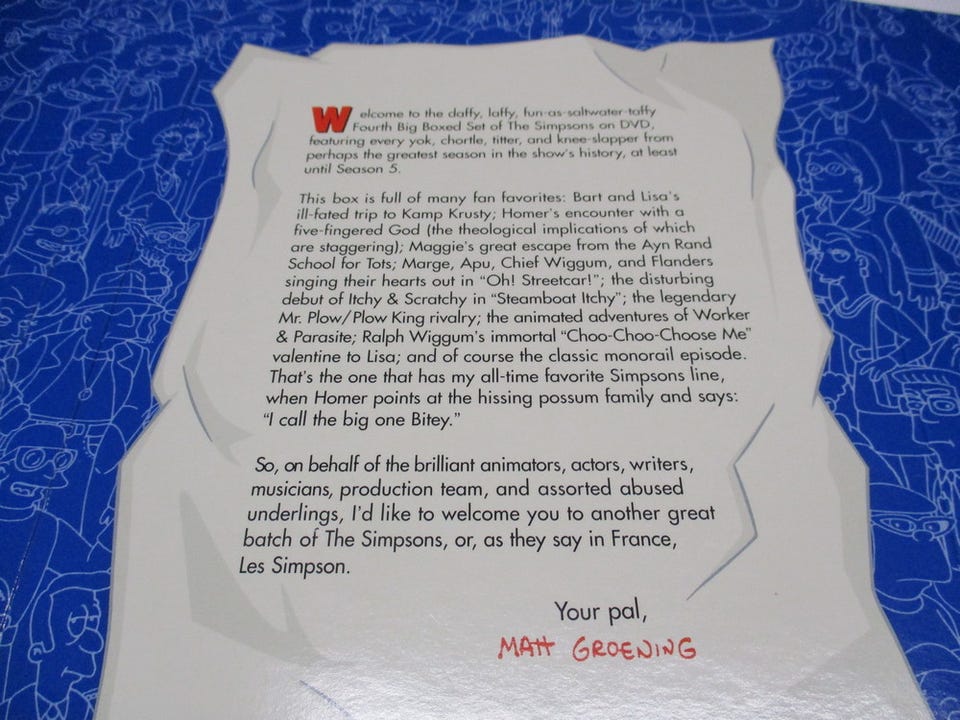 Welcome to the daffy, laffy, fun-as-saltwater-taffy
Fourth Big Boxed Set of The Simpsons on DVD,
featuring every yok, chortle, titter, and knee-slapper from
perhaps the greatest season in the show's history, at least
until Season 5.
This box is full of many fan favorites: Bart and Lisa's
ill-fated trip to Kamp Krusty; Homer's encounter with a
five-fingered God (the theological implications of which
are staggering); Maggie's great escape from the Ayn Rand
School for Tots; Marge, Apu, Chief Wiggum, and Flanders
singing their hearts out in "Oh! Streetcar!"; the disturbing
debut of Itchy & Scratchy in "Steamboat Itchy"; the legendary
Mr. Plow/Plow King rivalry; the animated adventures of Worker
& Parasite; Ralph Wiggum's immortal "Choo-Choo-Choose Me"
valentine to Lisa; and of course the classic monorail episode.
That's the one that has my all-time favorite Simpsons line,
when Homer points at the hissing possum family and says:
"I call the big one Bitey."
So, on behalf of the brilliant animators, actors, writers,
musicians, production team, and assorted abused
underlings, I'd like to welcome you to another great
batch of The Simpsons, or, as they say in France,
Les Simpson.
Your pal,
MATT GROENING